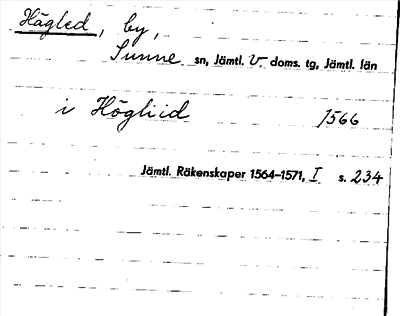 Hägled, by,
Sunne sn, Jämtl. V. doms. tg, Jämtl. län
i Högliid 1566
Jämtl. Räkenskaper 1564–1571, I s. 234